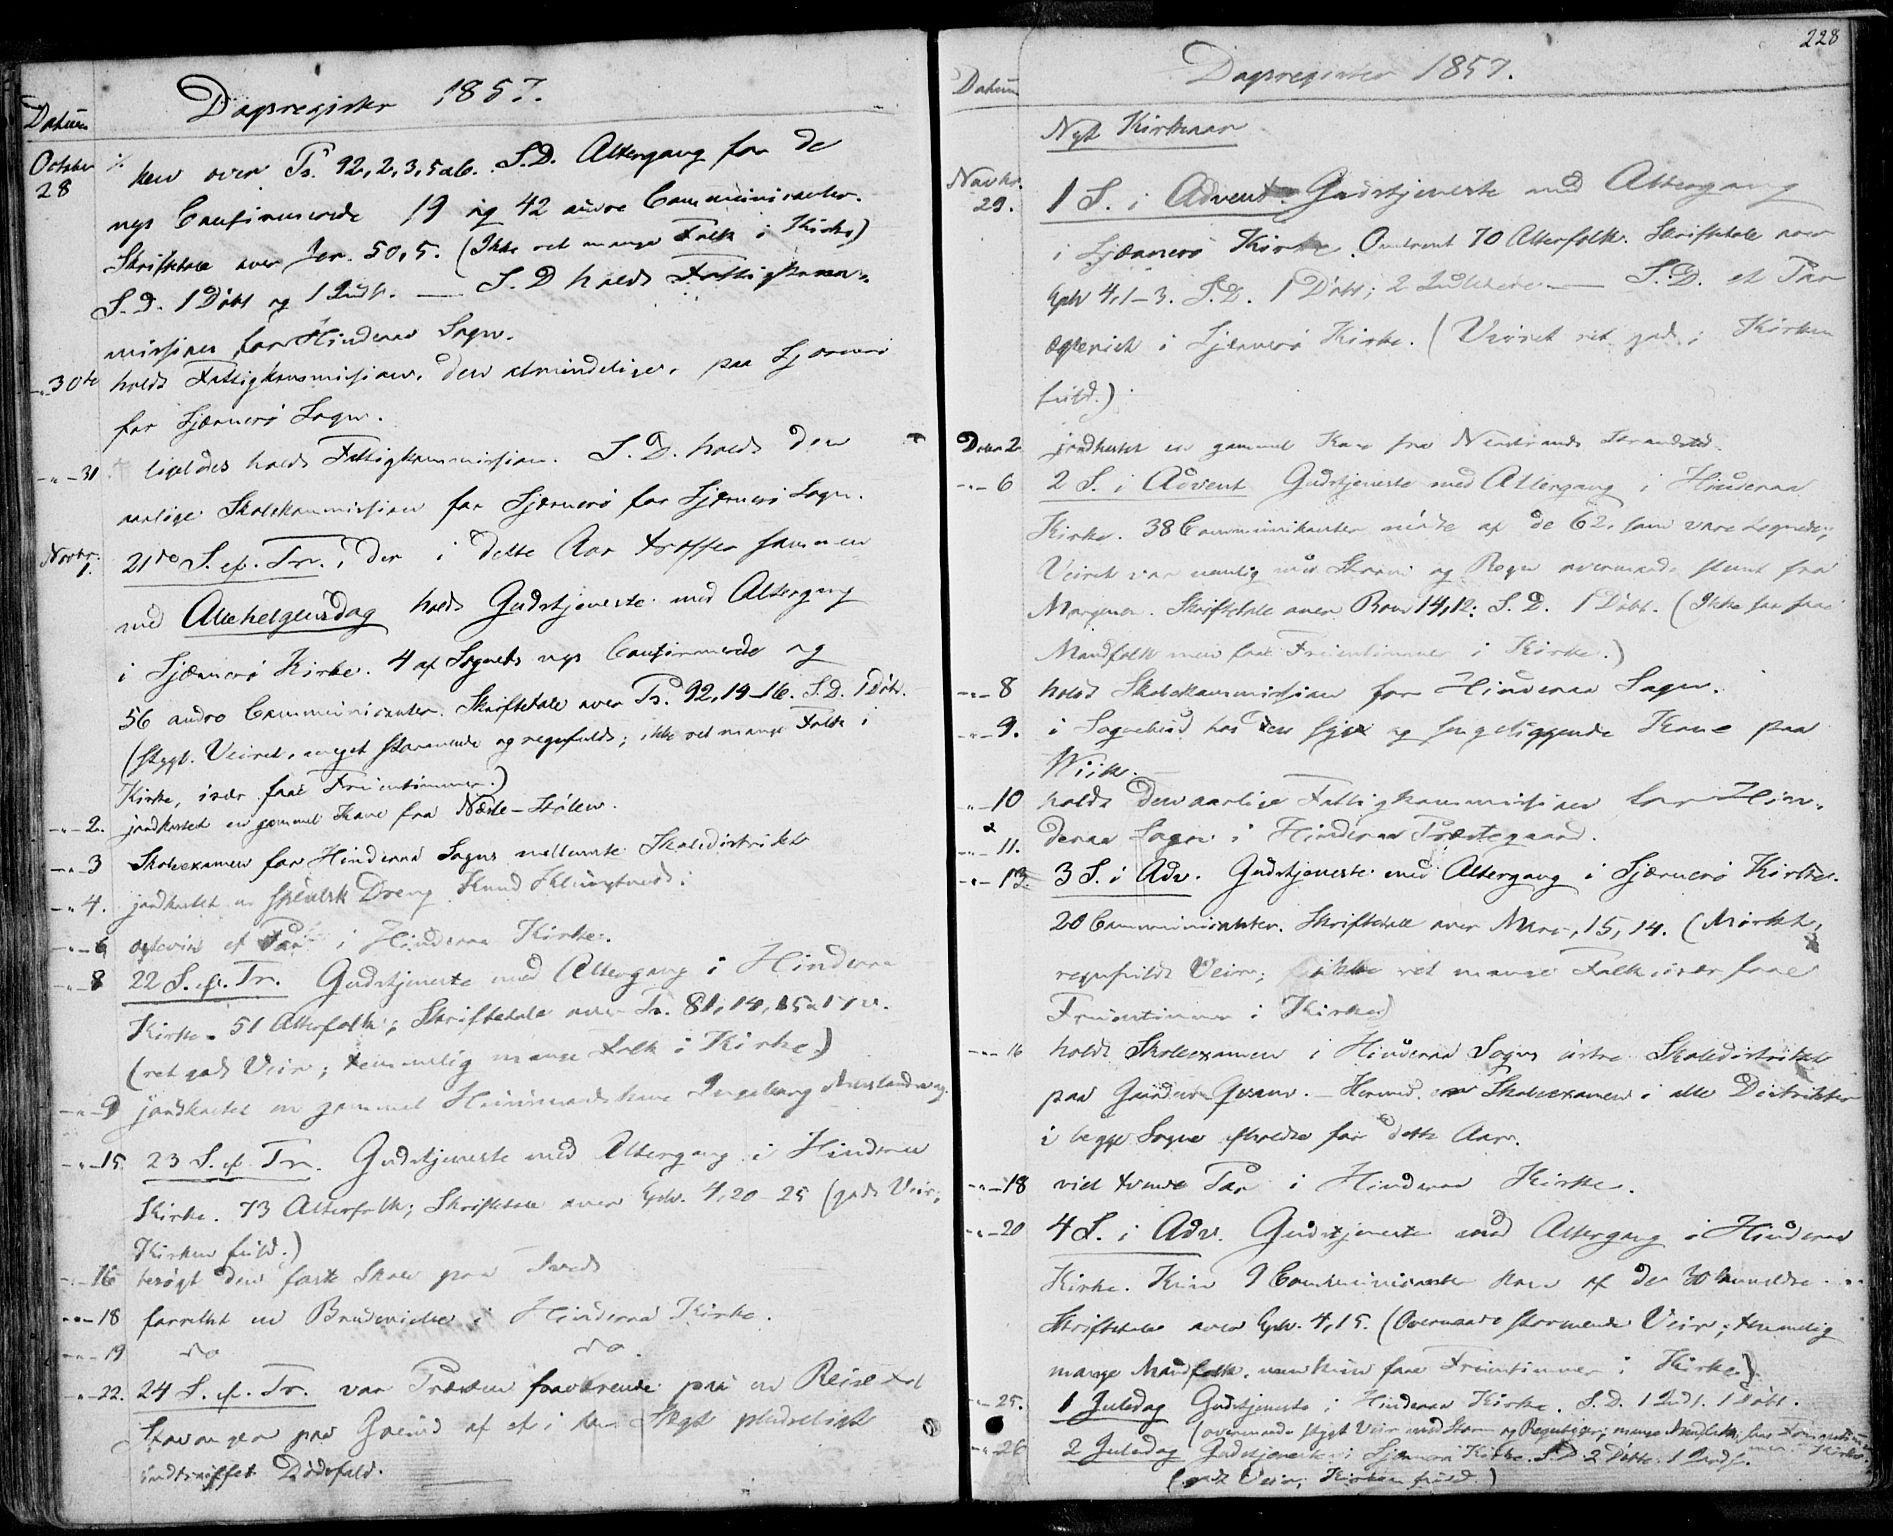 Dagsregister 1857.
Datum
October 28 ken over Ps. 92, 2, 3, 5 a 6. S.D. Altergang for de
nys Confirmerede 19 og 42 andre Communicanter.
Skriftetale over Jer. 50, 5. (Ikke ret mange Folk i Kirke)
S.D. 1 Døbt og 1 Indl. — S.D. holdt Fattigkom-
mission for Hinderaa Sogn.
-„- 30te holdt Fattigkommission, den almindelige, paa Sjærnerø
for Sjærnerø Sogn.
-„- 31 ligeledes holdt Fattigkommission. S.D. holdt den
aarlige Skolekommission for Sjærnerø Sogn.
Novbr. 1. 21de S. ef. Tr., der i dette Aar træffer sammen
med Allehelgensdag holdt Gudstjeneste med Altergang
i Sjærnerø Kirke. 4 af Sognets nys Confirmerede og
56 andre Communicanter. Skriftetale over Ps. 92, 14-16. S.D. 1 Døbt.
(Stygt Veiret, meget stormende og regnfuldt; ikke ret mange Folk i
Kirke, især faae Fruentimmer.)
-„- 2. jordkastet en gammel Kone fra Næste-Stølen.
-„- 3 Skoleexamen for Hinderaa Sogns mellemste Skoledistrikt
-„- 4. jordkastet en spedalsk Dreng Knud
-„- 6 ogteviet et Par i Hinderaa Kirke.
-„- 8 22 S. ef. Tr. Gudstjeneste med Altergang i Hinderaa
Kirke. 51 Alterfolk; Skriftetale over Ps. 81, 14, 15 a 17 v.
(ret godt Veir; temmelig mange Folk i Kirke.)
-„- 9 jordkastet en gammel Huusmandskone Ingeborg
-„- 15 23 S. ef. Tr. Gudstjeneste med Altergang i Hinderaa
Kirke. 73 Alterfolk; Skriftetale over Eph. 4, 20-25 (godt Veir;
Kirken fuld.)
-„- 16 besøgt den faste Skole paa
-„- 18 forrettet en Brudevielse i Hinderaa Kirke.
-„- 19 do do.
-„- 22. 24 S. ef. Tr. var Præsten fraværende paa en Reise til
Stavanger paa Grund af et i hans Slægt pludseligt
indtruffet Dødsfald.
228
Dagsregister 1857.
Datum
Nyt Kirkeaar
Novbr. 29. 1 S. i Advent Gudstjeneste med Altergang
i Sjærnerø Kirke. Omtrent 70 Alterfolk. Skriftetale over
Eph 4, 1-3. S.D. 1 Døbt; 2 Indledede — S.D. et Par
ægteviet i Sjærnerø Kirke. (Veiret ret godt; Kirken
fuld.)
Decbr 2 jordkastet en gammel Kone fra Nerstrands Strandsted.
-„- 6 2 S. i Advent Gudstjeneste med Altergang i Hinderaa
Kirke. 38 Communikanter mødte af de 62, som vare tegnede;
Veiret var nemlig med Storm og Regn overmaade slemt fra
Morgenen. Skriftetale over Rom 14, 12. S.D. 1 Døbt. (Ikke saa faae
Mandfolk men faae Fruentimmer i Kirke.)
-„- 8 holdt Skolekommission for Hinderaa Sogn.
-„- 9. i Sognebud hos en syg og sengeliggende Kone paa
Wiik.
-„- 10 holdt den aarlige Fattigkommission for Hin-
& -„- 11. deraa Sogn i Hinderaa Præstegaard.
-„- 13. 3 S. i Adv. Gudstjeneste med Altergang i Sjærnerø Kirke.
20 Communicanter. Skriftetale over Marc. 15, 14. (Mørkt,
regnfuldt Veir; ikke ret mange Folk, især faae
Fruentimmer i Kirke.)
-„- 16 holdt Skoleexamen i Hinderaa Sogns østre Skoledistrikt
paa Gaarden Qvam. — Hermed er Skoleexamen i alle Distrikter
i begge Sogne afholdte for dette Aar.
-„- 18 viet tvende Par i Hinderaa Kirke.
-„- 20 4 S. i Adv. Gudstjeneste med Altergang i Hinderaa
Kirke. Kun 9 Communicanter kom af de 30 anmeldte.
Skriftetale over Eph. 4, 15. (Overmaade stormende Veir; temmelig
mange Mandfolk, men kun faae Fruentimmer i Kirke.)
-„- 25. 1 Juledag Gudstjeneste i Hinderaa Kirke. S.D. 1 Indl. 1 Døbt.
(overmaade stygt Veir med Storm og Regnbyger; mange Mandfolk, faae Fruentim-
mer i Kirke.
-„- 26 2 Juledag Gudstjeneste i Sjærnerø Kirke. S.D. 2 Døbte. 1 Indl.
(godt Veir; Kirken fuld.)